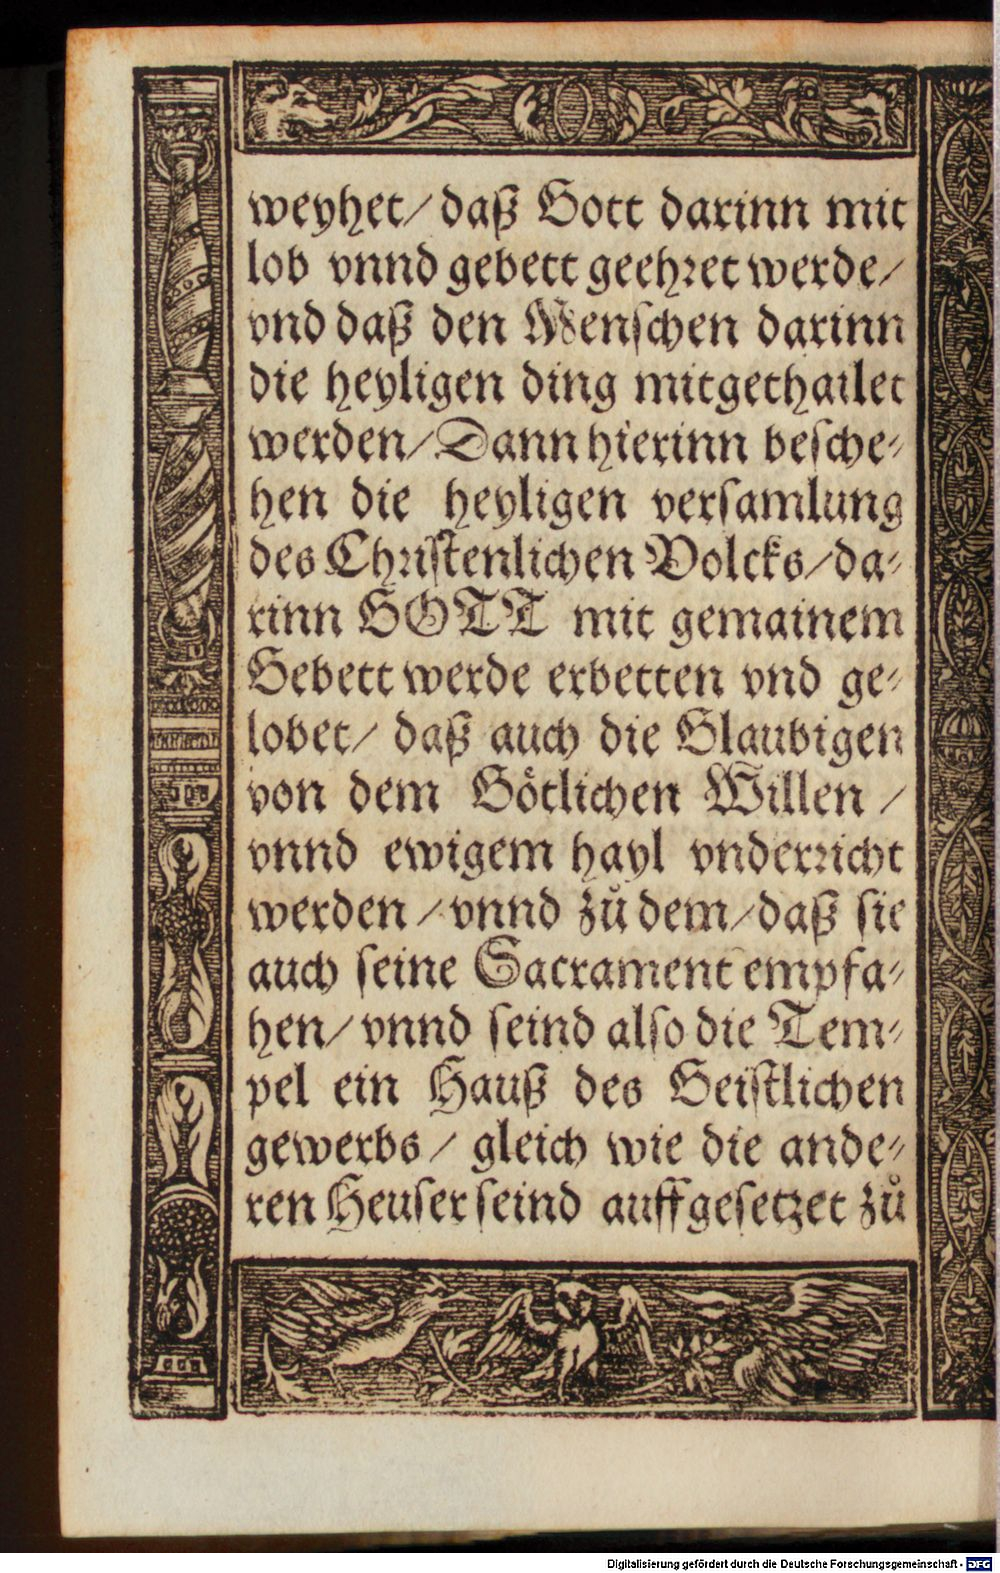 weyhet/ daß Gott darinn mit
lob vnnd gebett geehret werde/
vnd daß den Menschen darinn
die heyligen ding mitgethailet
werden/ Dann hierinn besche⸗
hen die heyligen versamlung
des Christenlichen Volcks/ da⸗
rinn GOTT mit gemainem
Gebett werde erbetten vnd ge⸗
lobet/ daß auch die Glaubigen
von dem Götlichen Willen /
vnnd ewigem hayl vnderricht
werden / vnnd zů dem/ daß sie
auch seine Sacrament empfa⸗
hen/ vnnd seind also die Tem⸗
pel ein Hauß des Geistlichen
gewerbs / gleich wie die ande⸗
ren Heuser seind auffgesetzet zů
Digitalisierung gefördert durch die Deutsche Forschungsgemeinschaft - DFG